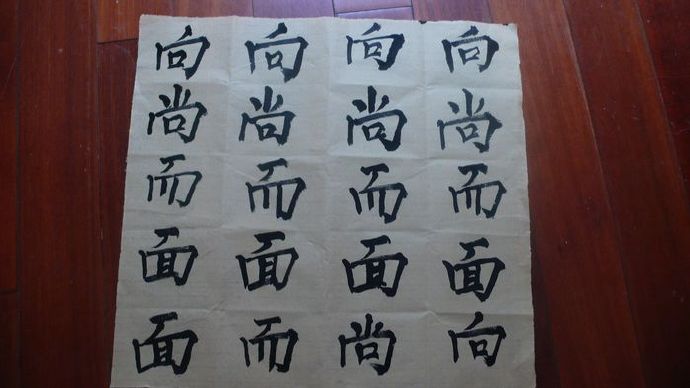 向向向向
尚尚尚尚
而而而而
面面面面
面而尚向